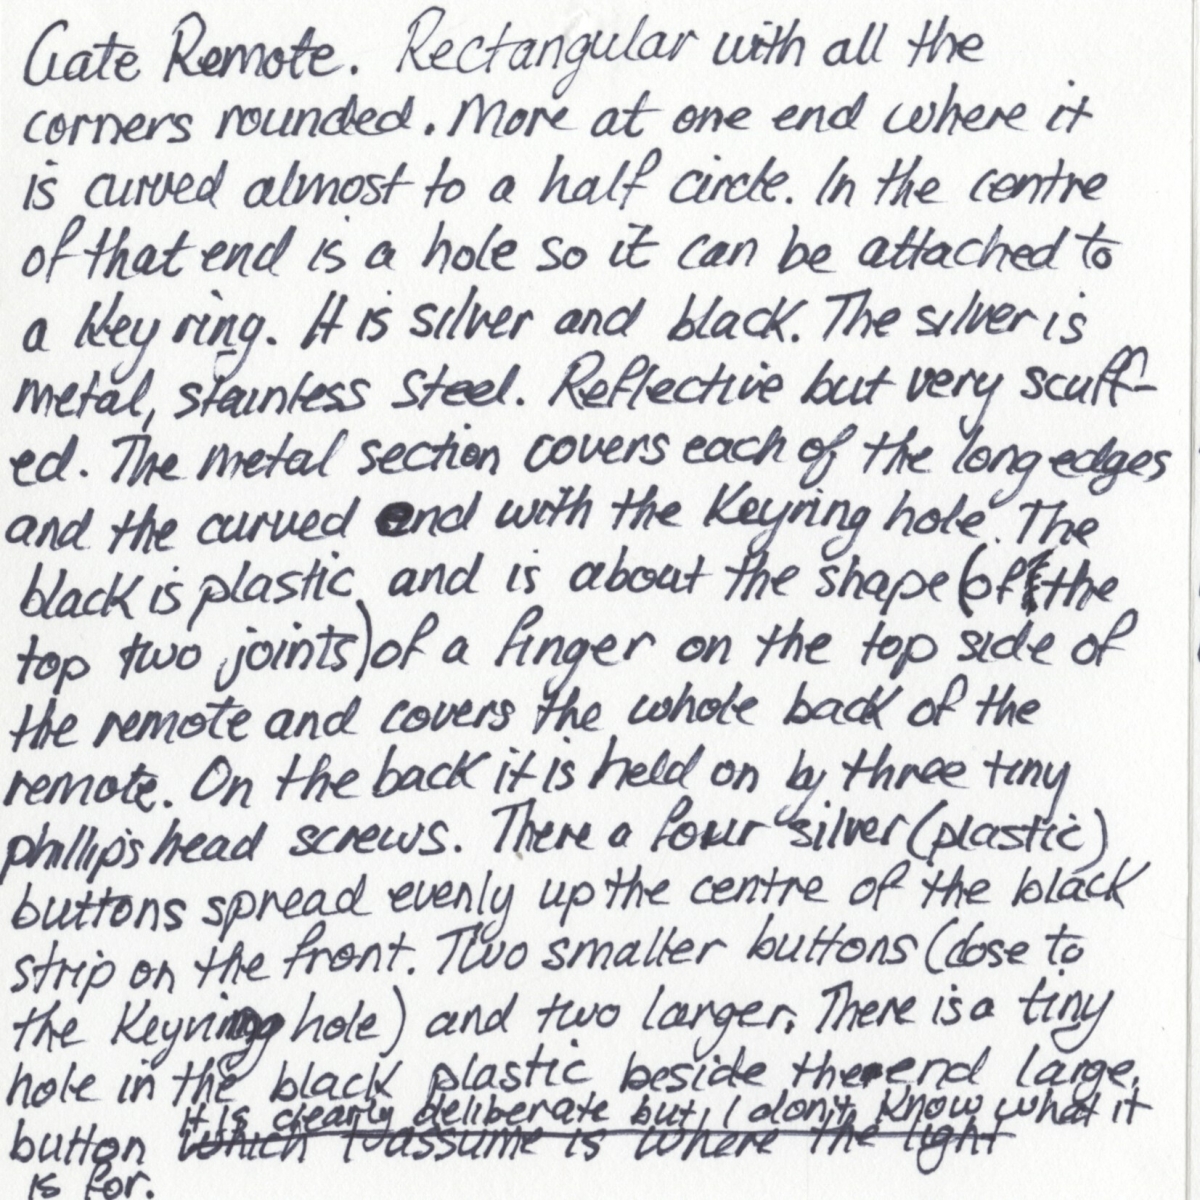 Gate Remote. Rectangular with all the
corners rounded. More at one end where it
is curved almost to a half circle. In the centre
of that end is a hole so it can be attached to
a key ring. It is silver and black. The silver is
metal, stainless steel. Reflective but very scuff-
ed. The metal section covers each of the long edges
and the curved end with the keyring hole. The
black is plastic and is about the shape (of the
top two joints) of a finger on the top side of
the remote and covers the whole back of the
remote. On the back it is held on by three tiny
phillip's head screws. There a four silver (plastic)
buttons spread evenly up the centre of the black
strip on the front. Two smaller buttons (close to
the keyring hole) and two larger. There is a tiny
hole in the black plastic beside the end large
it is clearly deliberate but I don't know what it
button which I assume is where the light
is for.